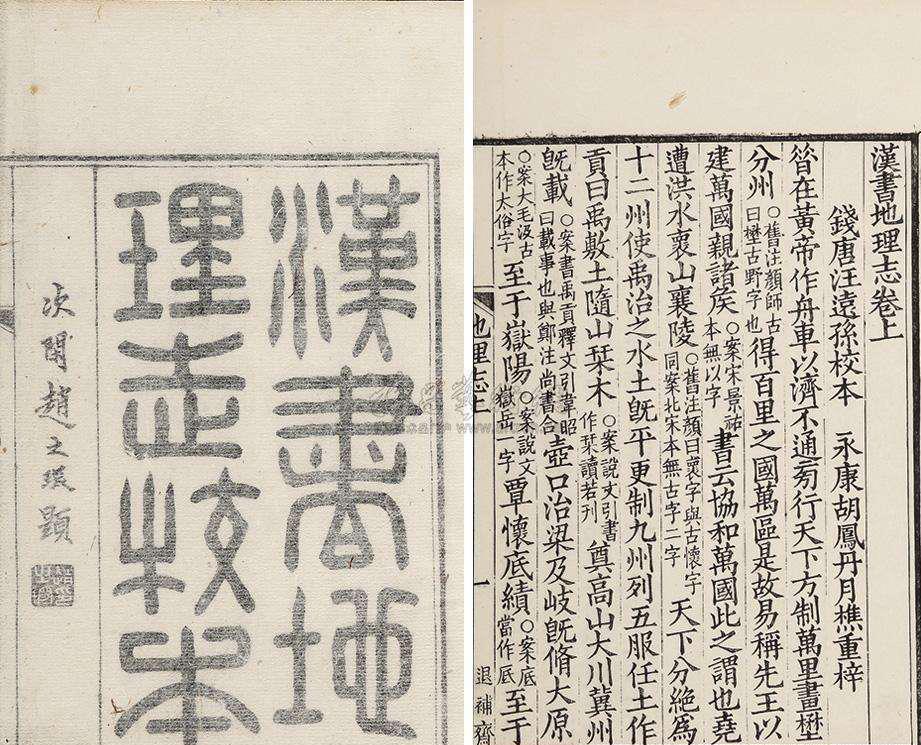 漢書地
理志校本
次閑趙之琛題
漢書地理志卷上
錢唐汪遠孫校本 永康胡鳳丹月樵重梓
昝在黃帝作舟車以濟不通㫄行天下方制萬里畫壄
分州○舊注顏師古曰壄古野字也得百里之國萬區是故易稱先王以
建萬國親諸矦○案宋景祐本無以字書云協和萬國此之謂也堯
遭洪水褱山襄陵○舊注顏曰褱字與古懷字同案北宋本無古字二字天下分絕爲
十二州使禹治之水土旣平更制九州列五服任土作
貢曰禹敷土隨山栞木○案說文引書作栞讀若刊奠高山大川冀州
旣載○案書禹貢釋文引韋昭曰載事也與鄭注尚書合壺口治梁及岐旣脩大原
○案大毛汲古本作太俗字至于嶽陽○案說文嶽岳一字覃懷底績○案底當作厎至于
地理志上 一 退補齋